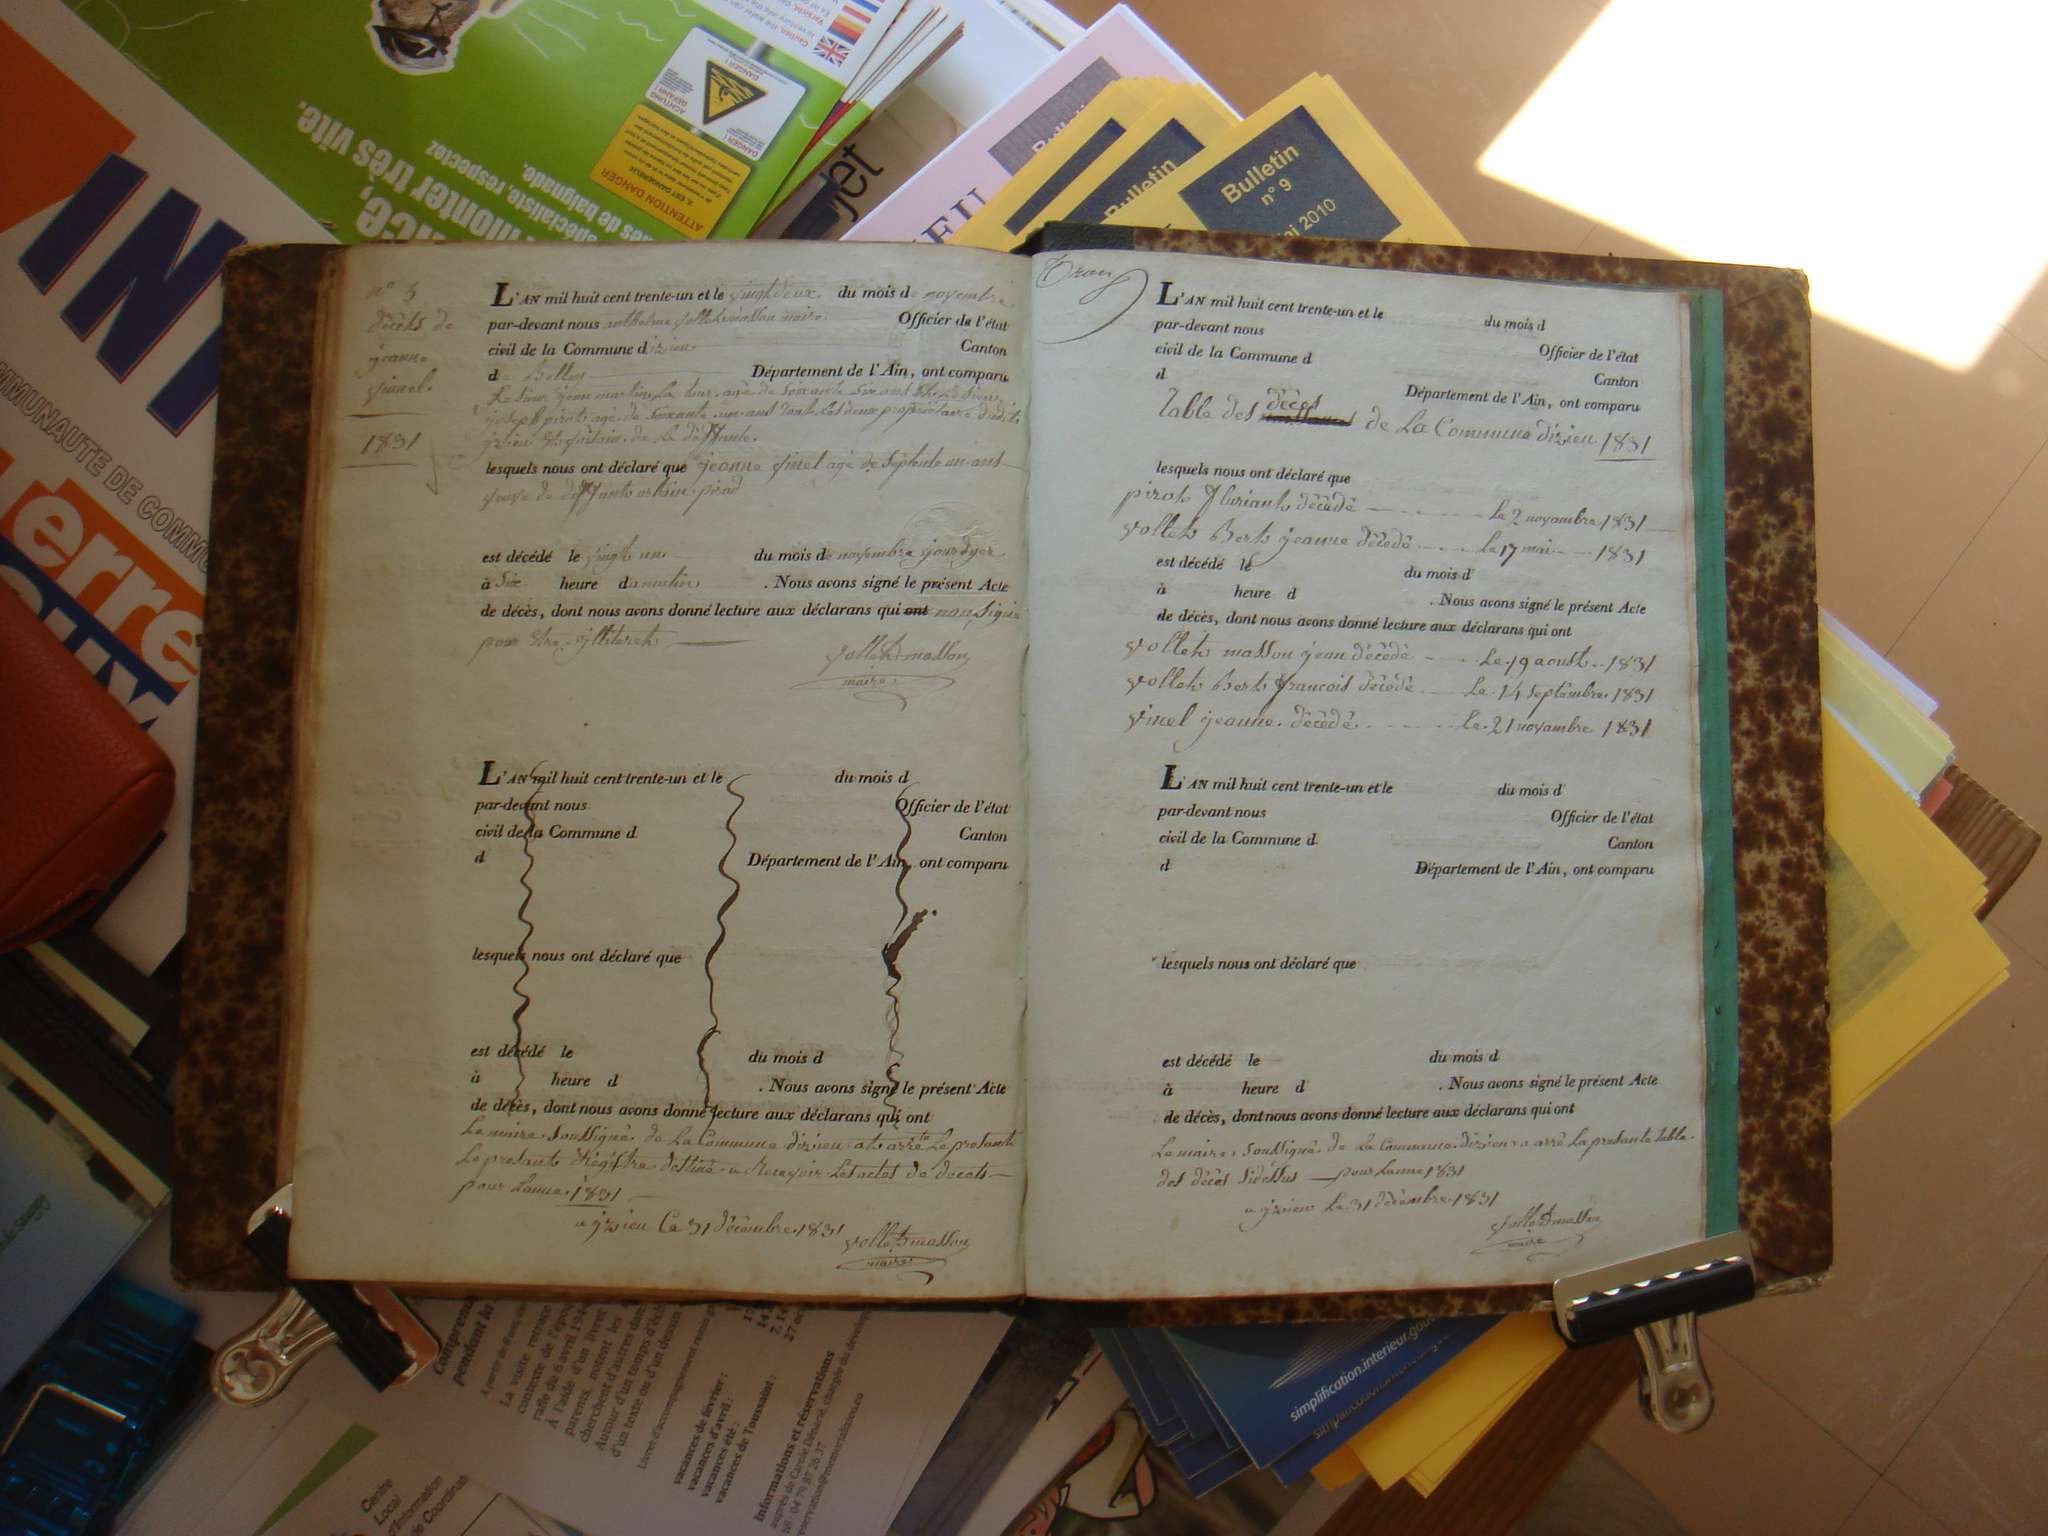 n° 5
décès de
jeanne
vinel.
1831
L'AN mil huit cent trente-un et le vingt deux du mois de novembre
par-devant nous anthelme vollet masson maire Officier de l'état
civil de la Commune dizieu Canton
de Belley Département de l'Ain, ont comparu
Le sieur jean martin La tour agé de soixante six ans et Le sieur
joseph pirot agé de soixante un ans tout Les deux propriétaire dudit
yzieu et voisin de La deffunte.
lesquels nous ont déclaré que jeanne vinel agé de septente un ans
veuve de deffunt pirod
est décédé le vingt un du mois de novembre jour dyer
à Six heure du matin . Nous avons signé le présent Acte
de décès, dont nous avons donné lecture aux déclarans qui ont non signé
pour etre illiteret
vollet masson
maire
L'AN mil huit cent trente-un et le du mois d
par-devant nous Officier de l'état
civil de la Commune d Canton
d Département de l'Ain, ont comparu
lesquels nous ont déclaré que
est décédé le du mois d
à heure d . Nous avons signé le présent Acte
de décès, dont nous avons donné lecture aux déclarans qui ont
Le maire soussigné de La Commune dizieu at arrete Le presant
Le presant régistre destiné a Recevoir Les actes de decets
pour Lanne 1831
a yzieu Ce 31 décembre 1831
vollet masson
maire
L'AN mil huit cent trente-un et le du mois d
par-devant nous Officier de l'état
civil de la Commune d Canton
d Département de l'Ain, ont comparu
Table des décès de La Commune dizieu 1831
lesquels nous ont déclaré que
pirot fluriant décédé Le 2 novembre 1831
vollet Bert jeanne décédé Le 17 mai 1831
est décédé le du mois d
à heure d . Nous avons signé le présent Acte
de décès, dont nous avons donné lecture aux déclarans qui ont
vollet masson jean décédé Le 19 aoust 1831
vollet Bert francois décédé Le 14 septembre 1831
vinel jeanne décédé Le 21 novembre 1831
L'AN mil huit cent trente-un et le du mois d
par-devant nous Officier de l'état
civil de la Commune d Canton
d Département de l'Ain, ont comparu
lesquels nous ont déclaré que
est décédé le du mois d
à heure d . Nous avons signé le présent Acte
de décès, dont nous avons donné lecture aux déclarans qui ont
Le maire soussigné de La Commune dizieu a arré La presante table
des décès sidessus pour Lanne 1831
a yzieu Le 31 décembre 1831
vollet masson
maire
Bulletin
n° 9
2010
Bulletin
monter très vite.
spécialiste, respectez
de baignade.
ATTENTION DANGER
DANGER !
ACHTUNG
GEFAHR !
MMUNAUTE DE COMMU
erre
simplification.interieur.gouv
La visite retrace
Autour d'un temps d'éch
d'un texte ou d'un dessin
vacances de février :
vacances d'avril :
vacances été :
vacances de Toussaint :
Informations et réservations
tél. 04 79 87 26 37
Centre
Local
d'Information
de Coordinat